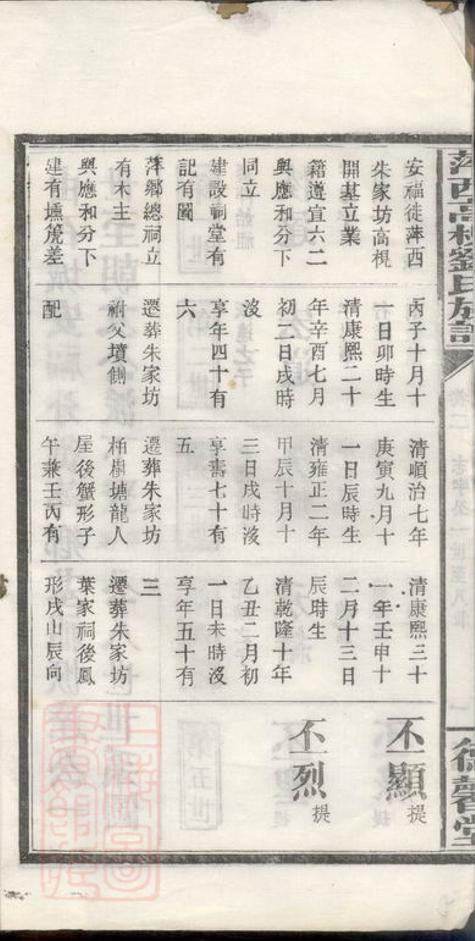 萍西高枧劉氏族譜
德馨堂
安福徙萍西
朱家坊高梘
開基立業
籍遵宣六二
與應和分下
同立
建設祠堂有
記有圖
萍鄉總祠立
有木主
與應和分下
建有壎篪差
丙子十月十
一日卯時生
清康熙二十
年辛酉七月
初二日戌時
沒
享年四十有
六
遷葬朱家坊
祔父墳側
配
清順治七年
庚寅九月十
一日辰時生
清雍正二年
甲辰十月十
三日戌時沒
享壽七十有
五
遷葬朱家坊
柏樹塘龍人
屋後蟹形子
午兼壬丙有
清康熙三十
一年壬申十
二月十三日
辰時生
清乾隆十年
乙丑二月初
一日未時沒
享年五十有
三
遷葬朱家坊
葉家祠後鳳
形戌山辰向
不顯 提
不烈 提